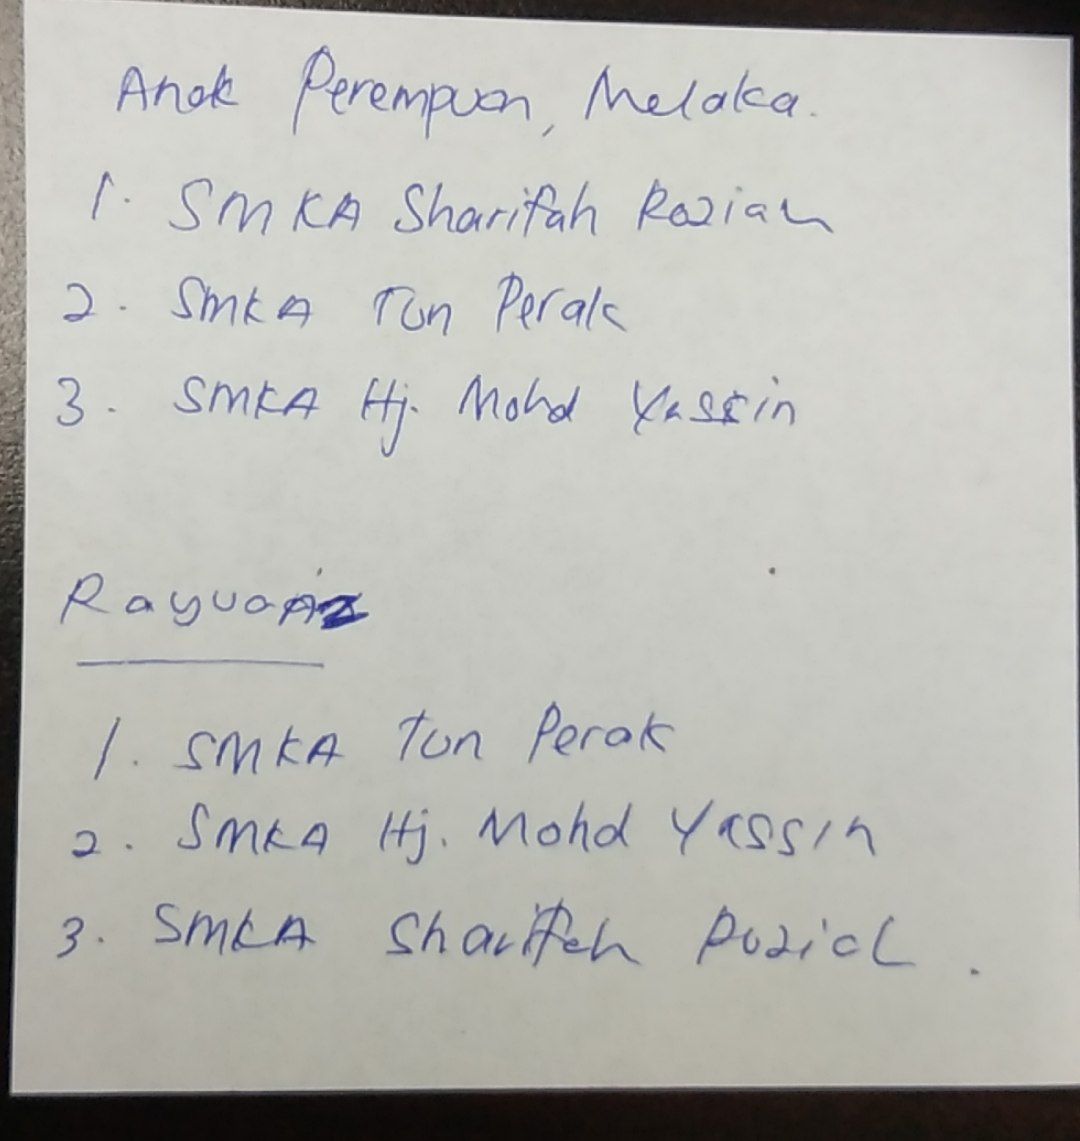 Anak Perempuan, Melaka.
1. SMKA Sharifah Roziah
2. SMKA Tun Perak
3. SMKA Hj. Mohd Yassin
Rayuan
1. SMKA Tun Perak
2. SMKA Hj. Mohd Yassin
3. SMKA Sharifah Roziah.